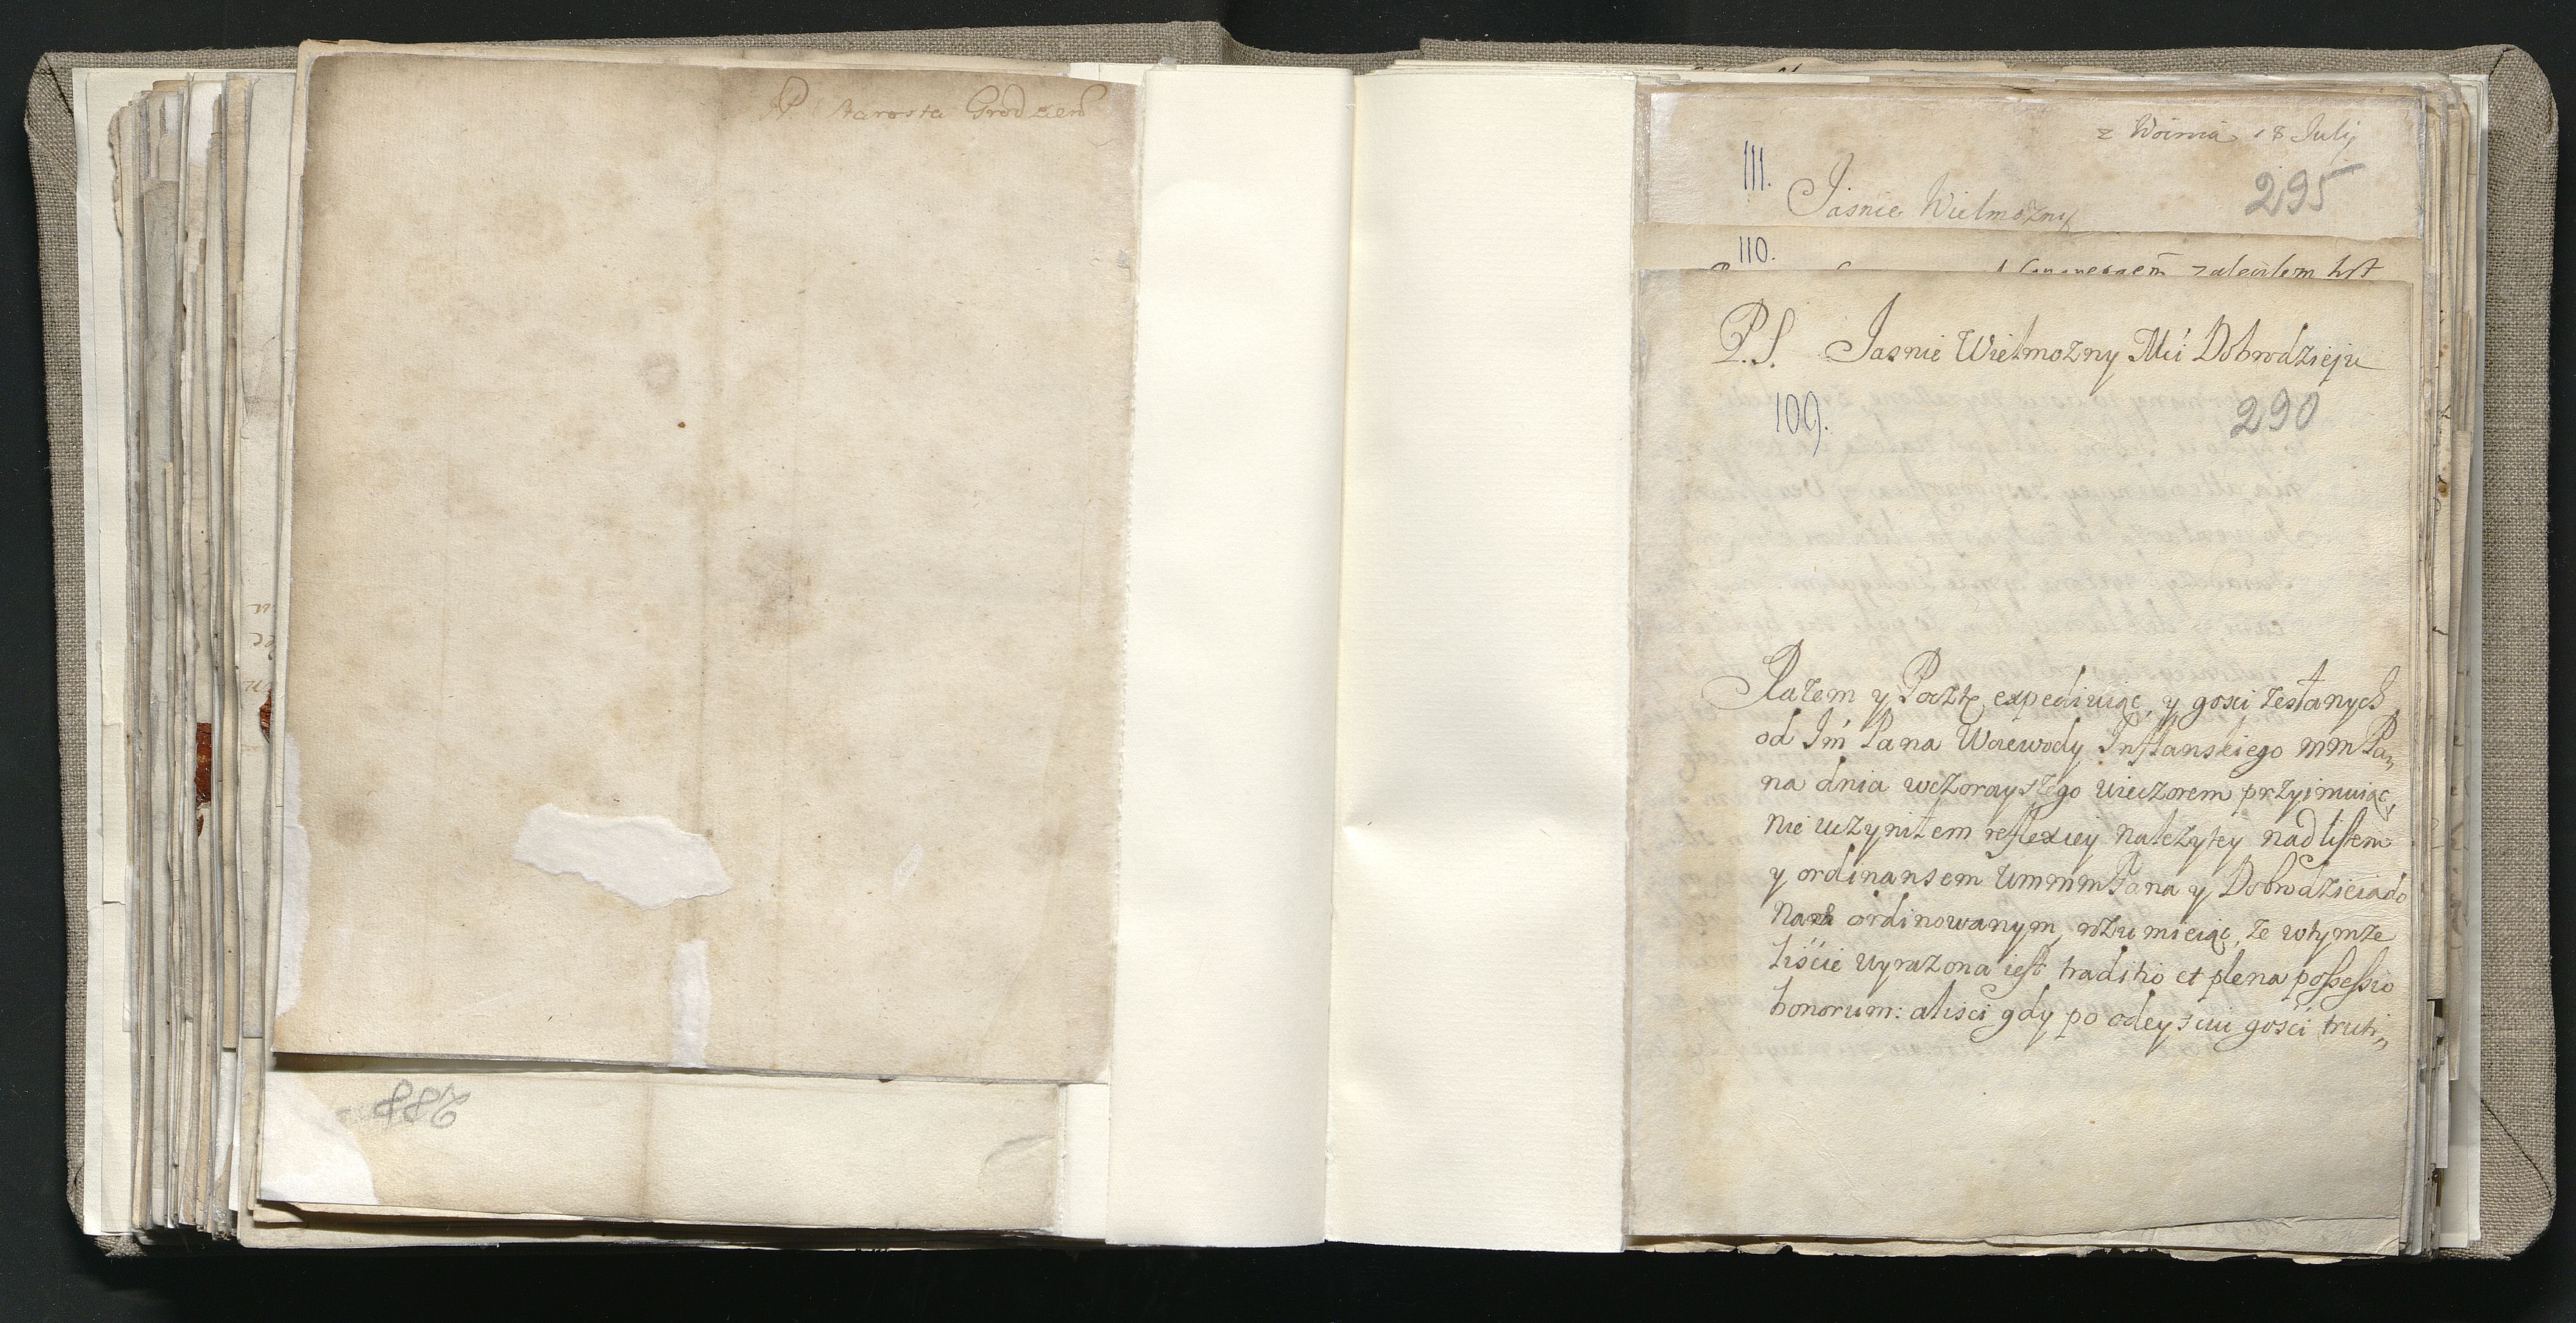 P Starosta Grodzień
288
z Woinia 18 Julij
111.
295
Jasnie Wielmozny
110.
zaleciłem list
P.S. Jasnie Wielmozny Mći Dobrodzieju
109.
290
Razem y Pocztę expediuiąc, y gosci zesłanych
od Jm̃ Pana Woiewody Inflanskiego mm Pa„
na dnia wczorayszego wieczorem przyimuiąc,
nie uczyniłem reflexiey nalezytey nad listem
y ordinansem Ummm Pana y Dobrodzieia do
nas ordinowanym, rozumieiąc, ze w tymze
liście wyrazona iest traditio et plena possessio
bonorum: alisci gdy po odeysciu gosci truti„